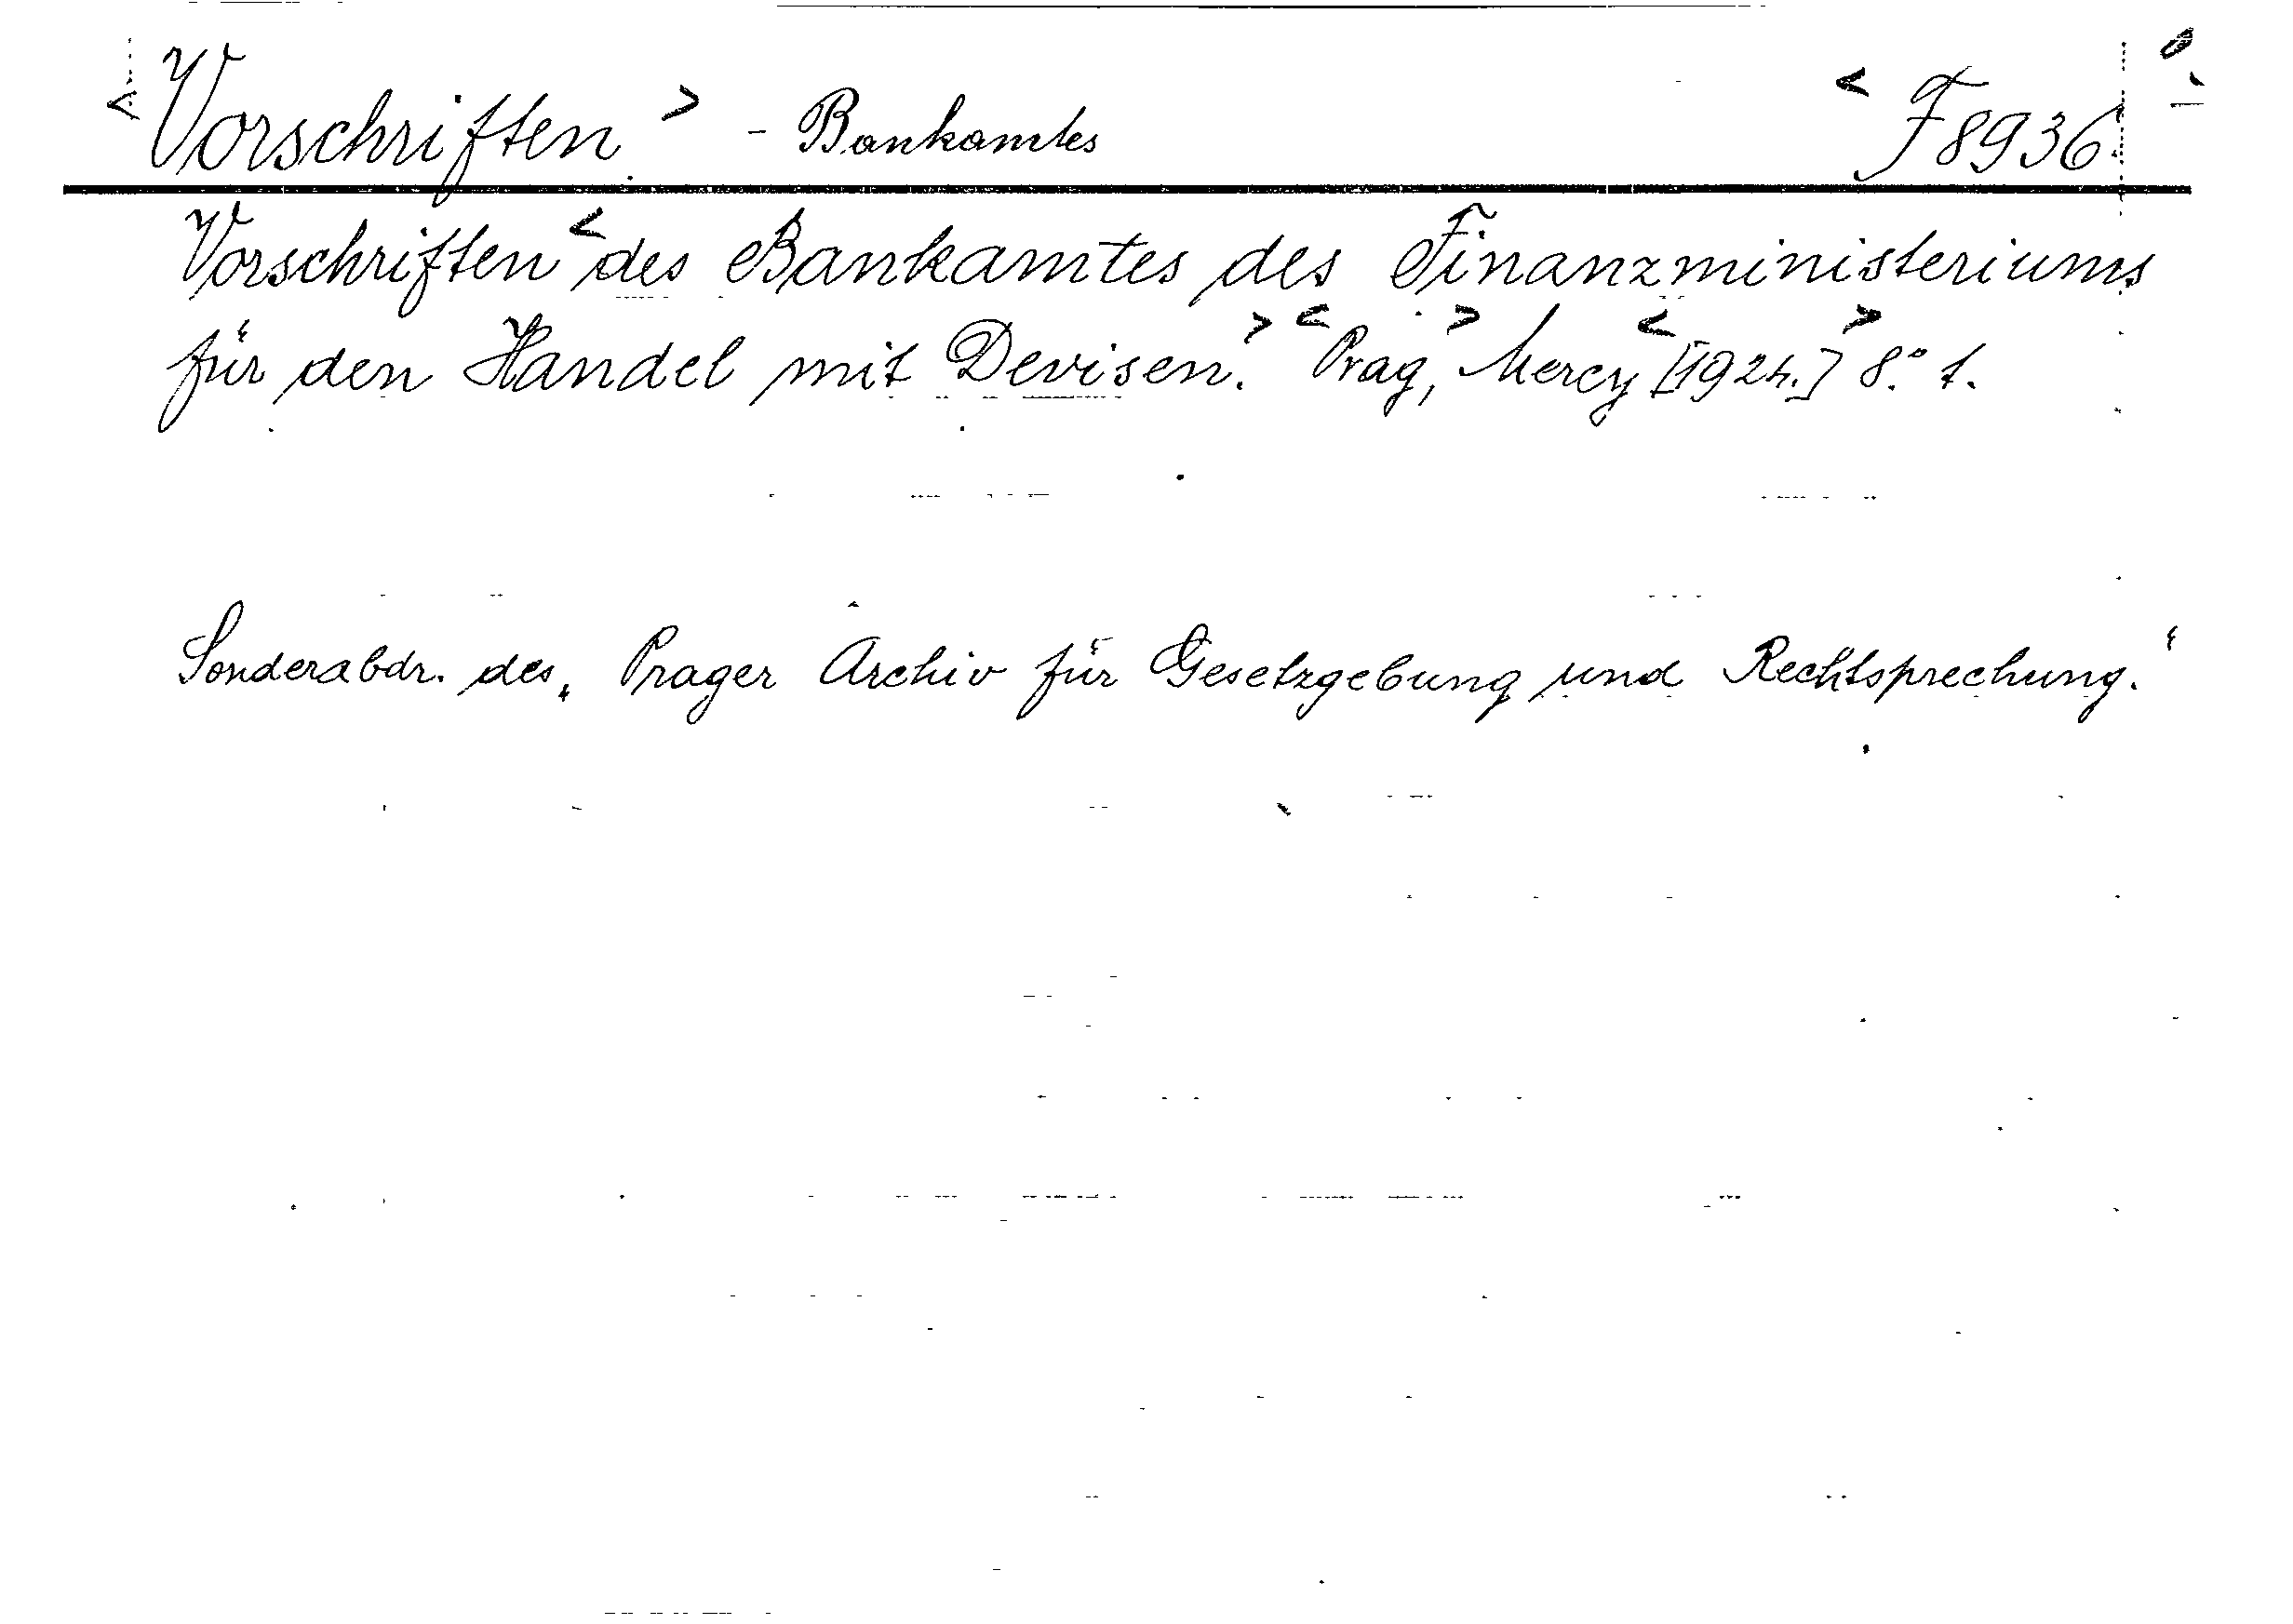 <Vorschriften> - Bankamtes <F 8936.
Vorschriften <des Bankamtes des Finanzministeriums
für den Handel mit Devisen.> <Prag,> Mercy <[1924.]> 8.° 1.
Sonderabdr. des „Prager Archiv für Gesetzgebung und Rechtsprechung.“